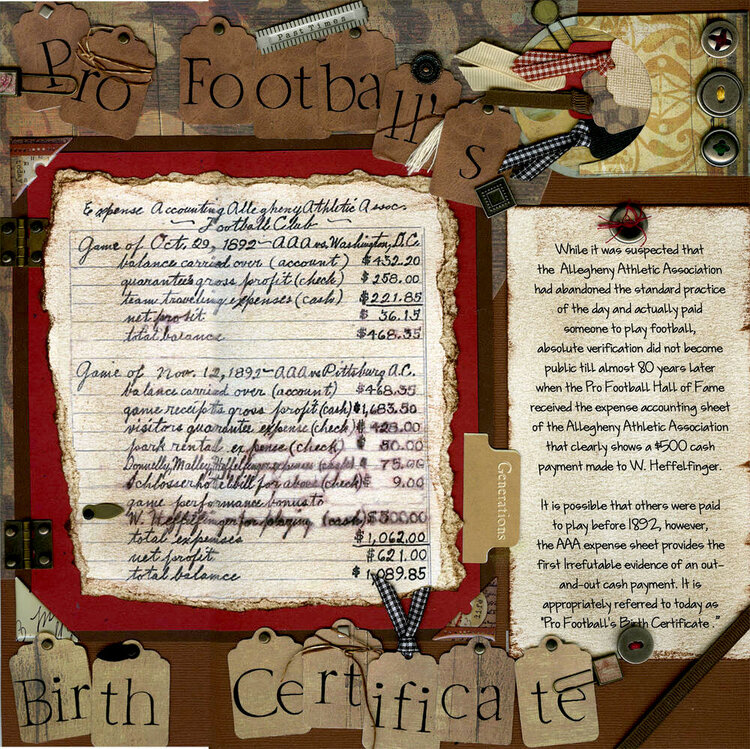 Pro Football's
Past Times
Expense Accounting Allegheny Athletic Assoc.
Football Club
Game of Oct. 29, 1892 - AAA vs. Washington, D.C.
balance carried over (account) $432.20
guarantee gross profit (check) $258.00
team traveling expenses (cash) $221.85
net profit $36.15
total balance $468.35
Game of Nov. 12, 1892 - AAA vs Pittsburg A.C.
balance carried over (account) $468.35
game receipts gross profit (cash) $1,683.50
visitors guarantee expense (check) $428.00
park rental expense (check) $50.00
Donnelly, Malley, Heffelfinger expenses (cash) $75.00
Schlosser hotel bill for above (check) $9.00
game performance bonus to
W. Heffelfinger for playing (cash) $500.00
total expenses $1,062.00
net profit $621.00
total balance $1,089.85
While it was suspected that
the Allegheny Athletic Association
had abandoned the standard practice
of the day and actually paid
someone to play football,
absolute verification did not become
public till almost 80 years later
when the Pro Football Hall of Fame
received the expense accounting sheet
of the Allegheny Athletic Association
that clearly shows a $500 cash
payment made to W. Heffelfinger.
It is possible that others were paid
to play before 1892, however,
the AAA expense sheet provides the
first Irrefutable evidence of an out-
and-out cash payment. It is
appropriately referred to today as
"Pro Football's Birth Certificate ."
Generations
Birth Certificate